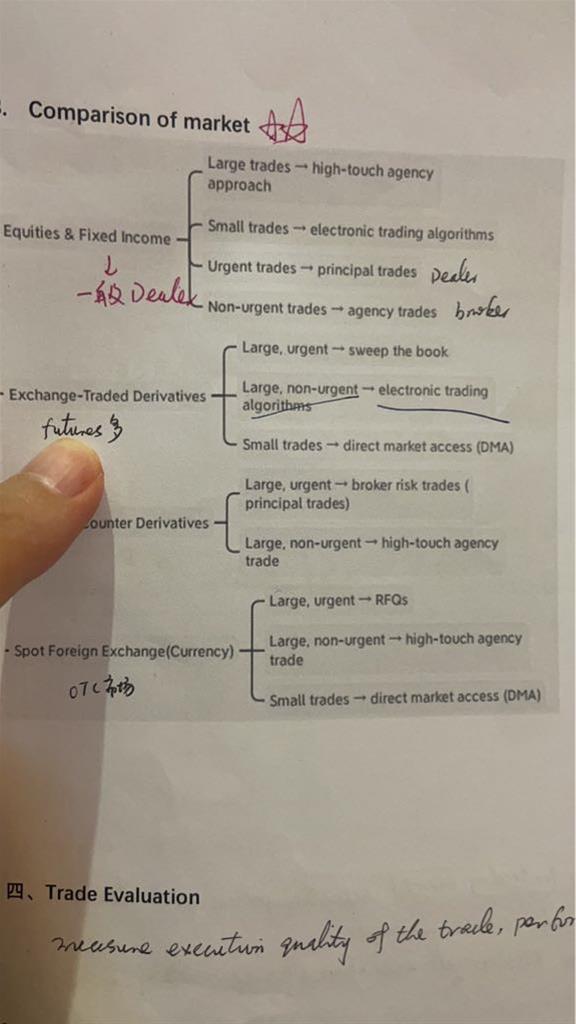 . Comparison of market
Large trades → high-touch agency
approach
Equities & Fixed Income
Small trades → electronic trading algorithms
↓
一般 Dealer
Urgent trades → principal trades Dealer
Non-urgent trades → agency trades broker
Large, urgent → sweep the book
- Exchange-Traded Derivatives
Large, non-urgent → electronic trading
algorithms
futures多
Small trades → direct market access (DMA)
Large, urgent → broker risk trades (
principal trades)
ounter Derivatives
Large, non-urgent → high-touch agency
trade
Large, urgent → RFQs
- Spot Foreign Exchange(Currency)
Large, non-urgent → high-touch agency
trade
OTC市场
Small trades → direct market access (DMA)
四、Trade Evaluation
measure execution quality of the trade, perfor